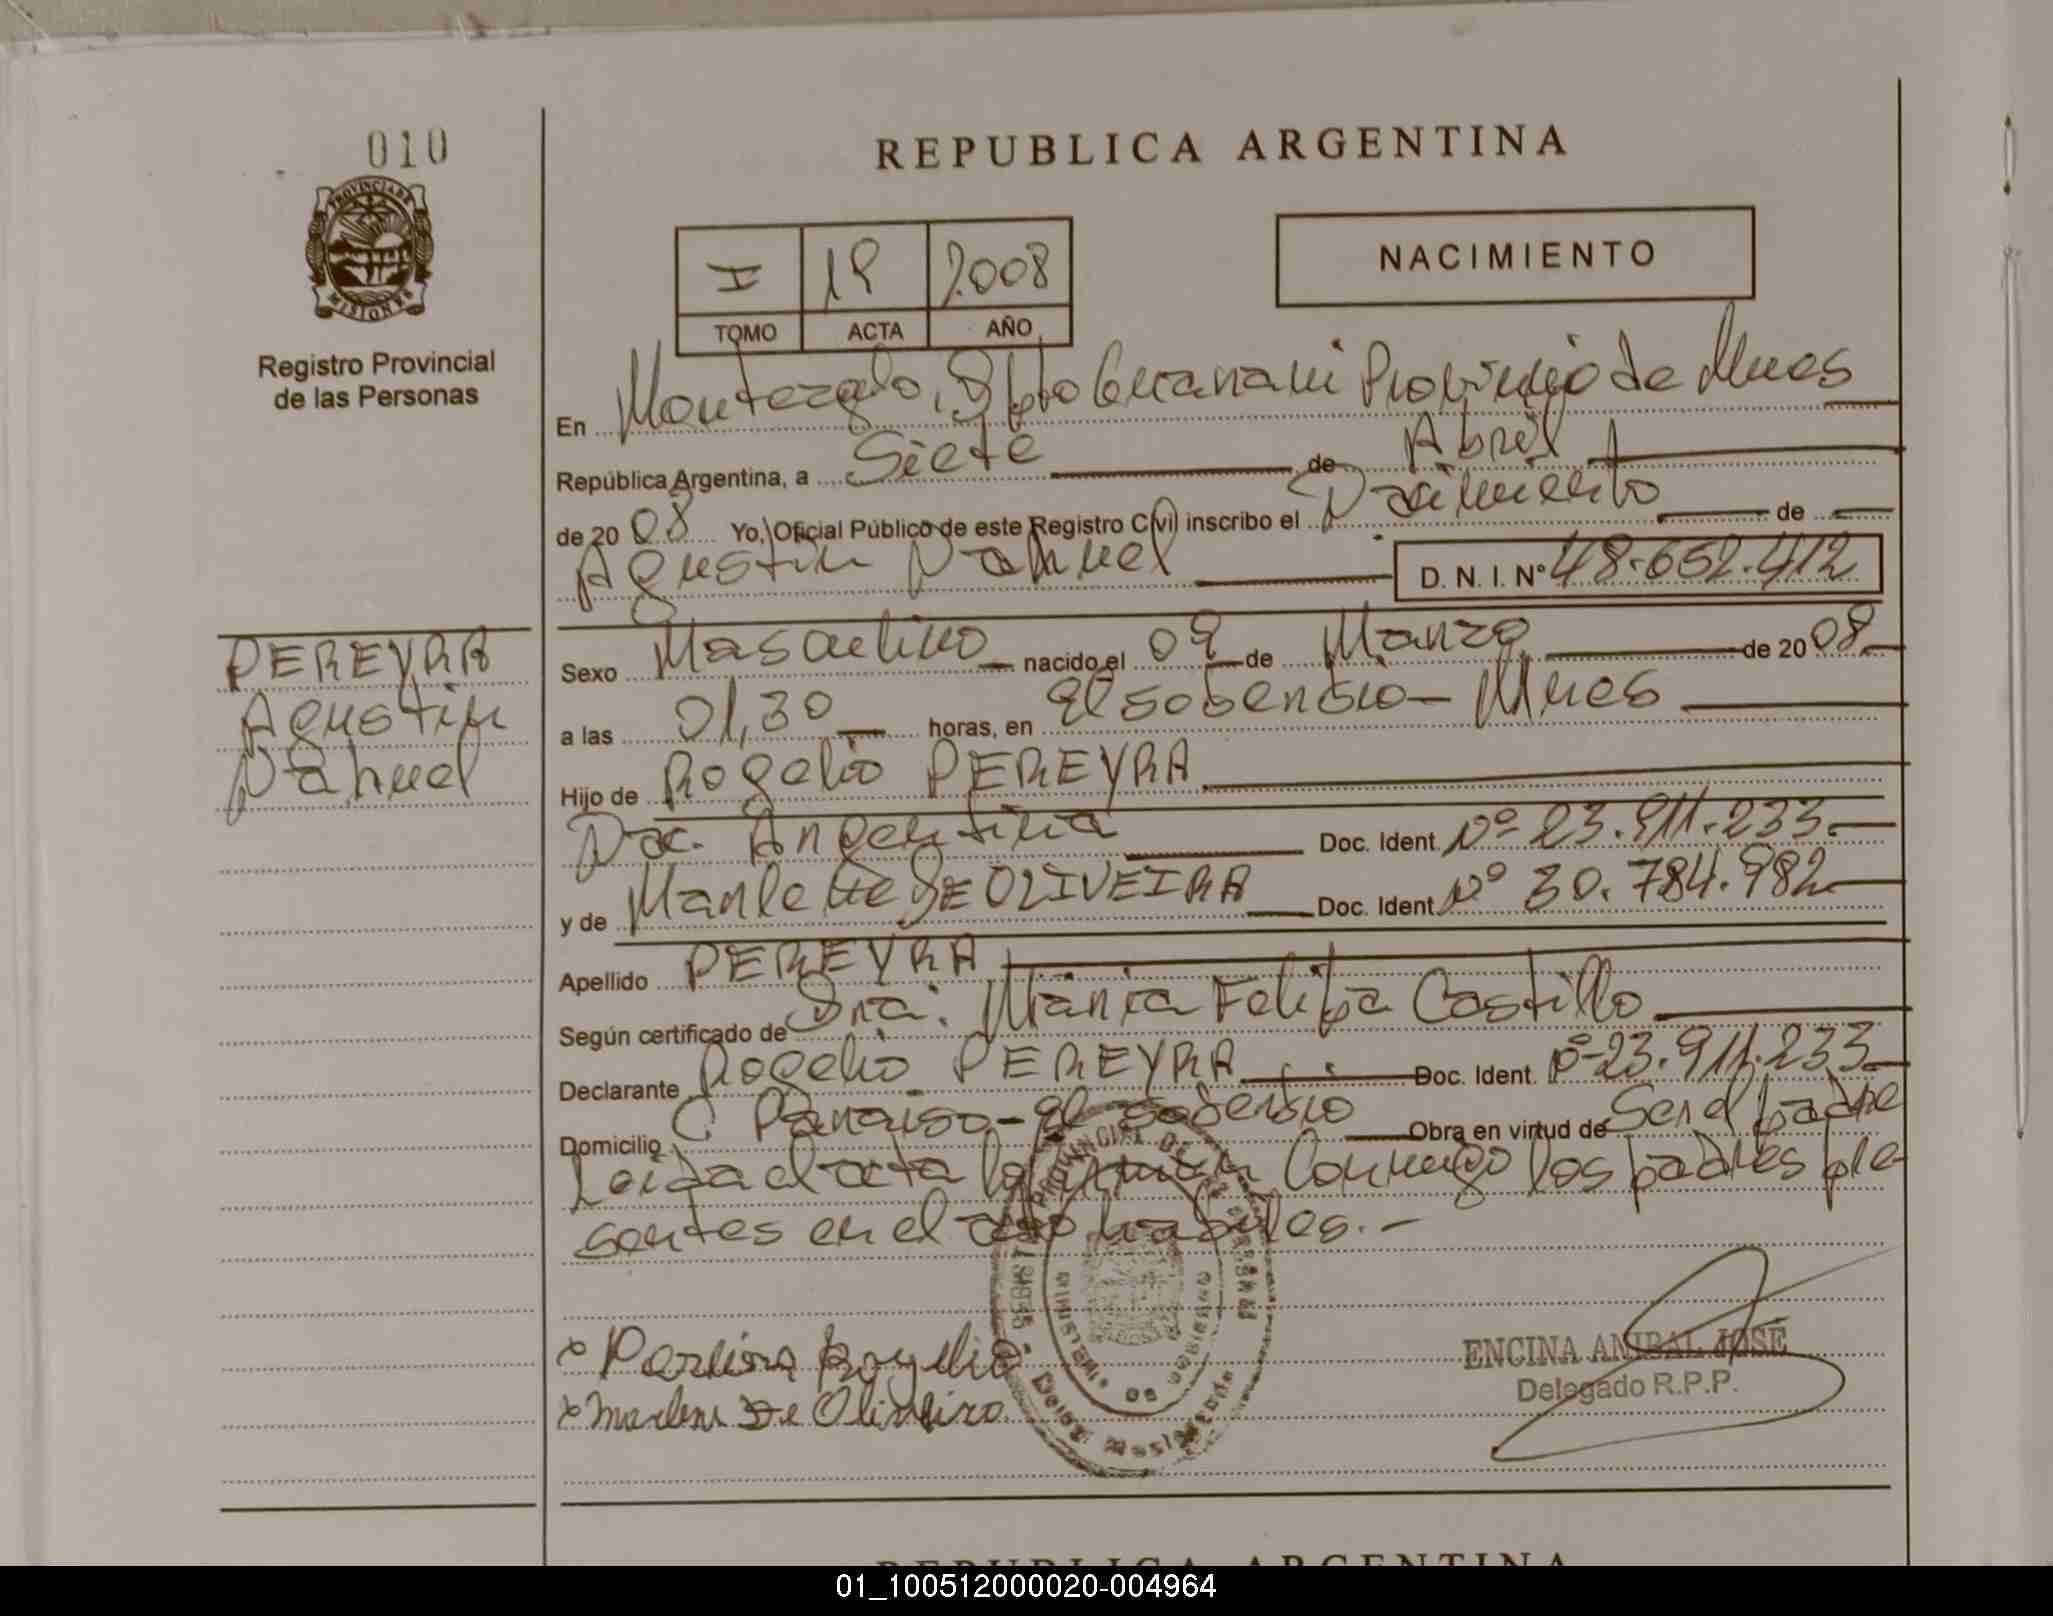 010
REPUBLICA ARGENTINA
PROVINCIA DE
MISIONES
Registro Provincial
de las Personas
I 19 2008
TOMO ACTA AÑO
NACIMIENTO
En Monteagudo, Dpto Guarani Provincia de Mnes
República Argentina, a Siete de Abril
de 2008 Yo, Oficial Público de este Registro Civil inscribo el Nacimiento de
Agustin Nahuel D. N. I. Nº 48.652.412
PEREYRA
Agustin
Nahuel
Sexo Masculino nacido el 09 de Marzo de 2008
a las 01,30 horas, en El soberbio - Mnes
Hijo de Rogelio PEREYRA
Nac. Argentina Doc. Ident. Nº 23.911.233.
y de Marlene DE OLIVEIRA Doc. Ident. Nº 30.784.982
Apellido PEREYRA
Según certificado de Dra. Maria Felipa Castillo
Declarante Rogelio PEREYRA Doc. Ident. Nº 23.911.233
Domicilio C Paraiso - El soberbio Obra en virtud de Ser el padre
Leida el acta la firman Conmigo los padres pre
sentes en el acto habiles. -
x Pereira Rogelio
x Marlene De Oliveira
ENCINA ANIBAL JOSE
Delegado R.P.P.
REPUBLICA ARGENTINA
01_100512000020-004964